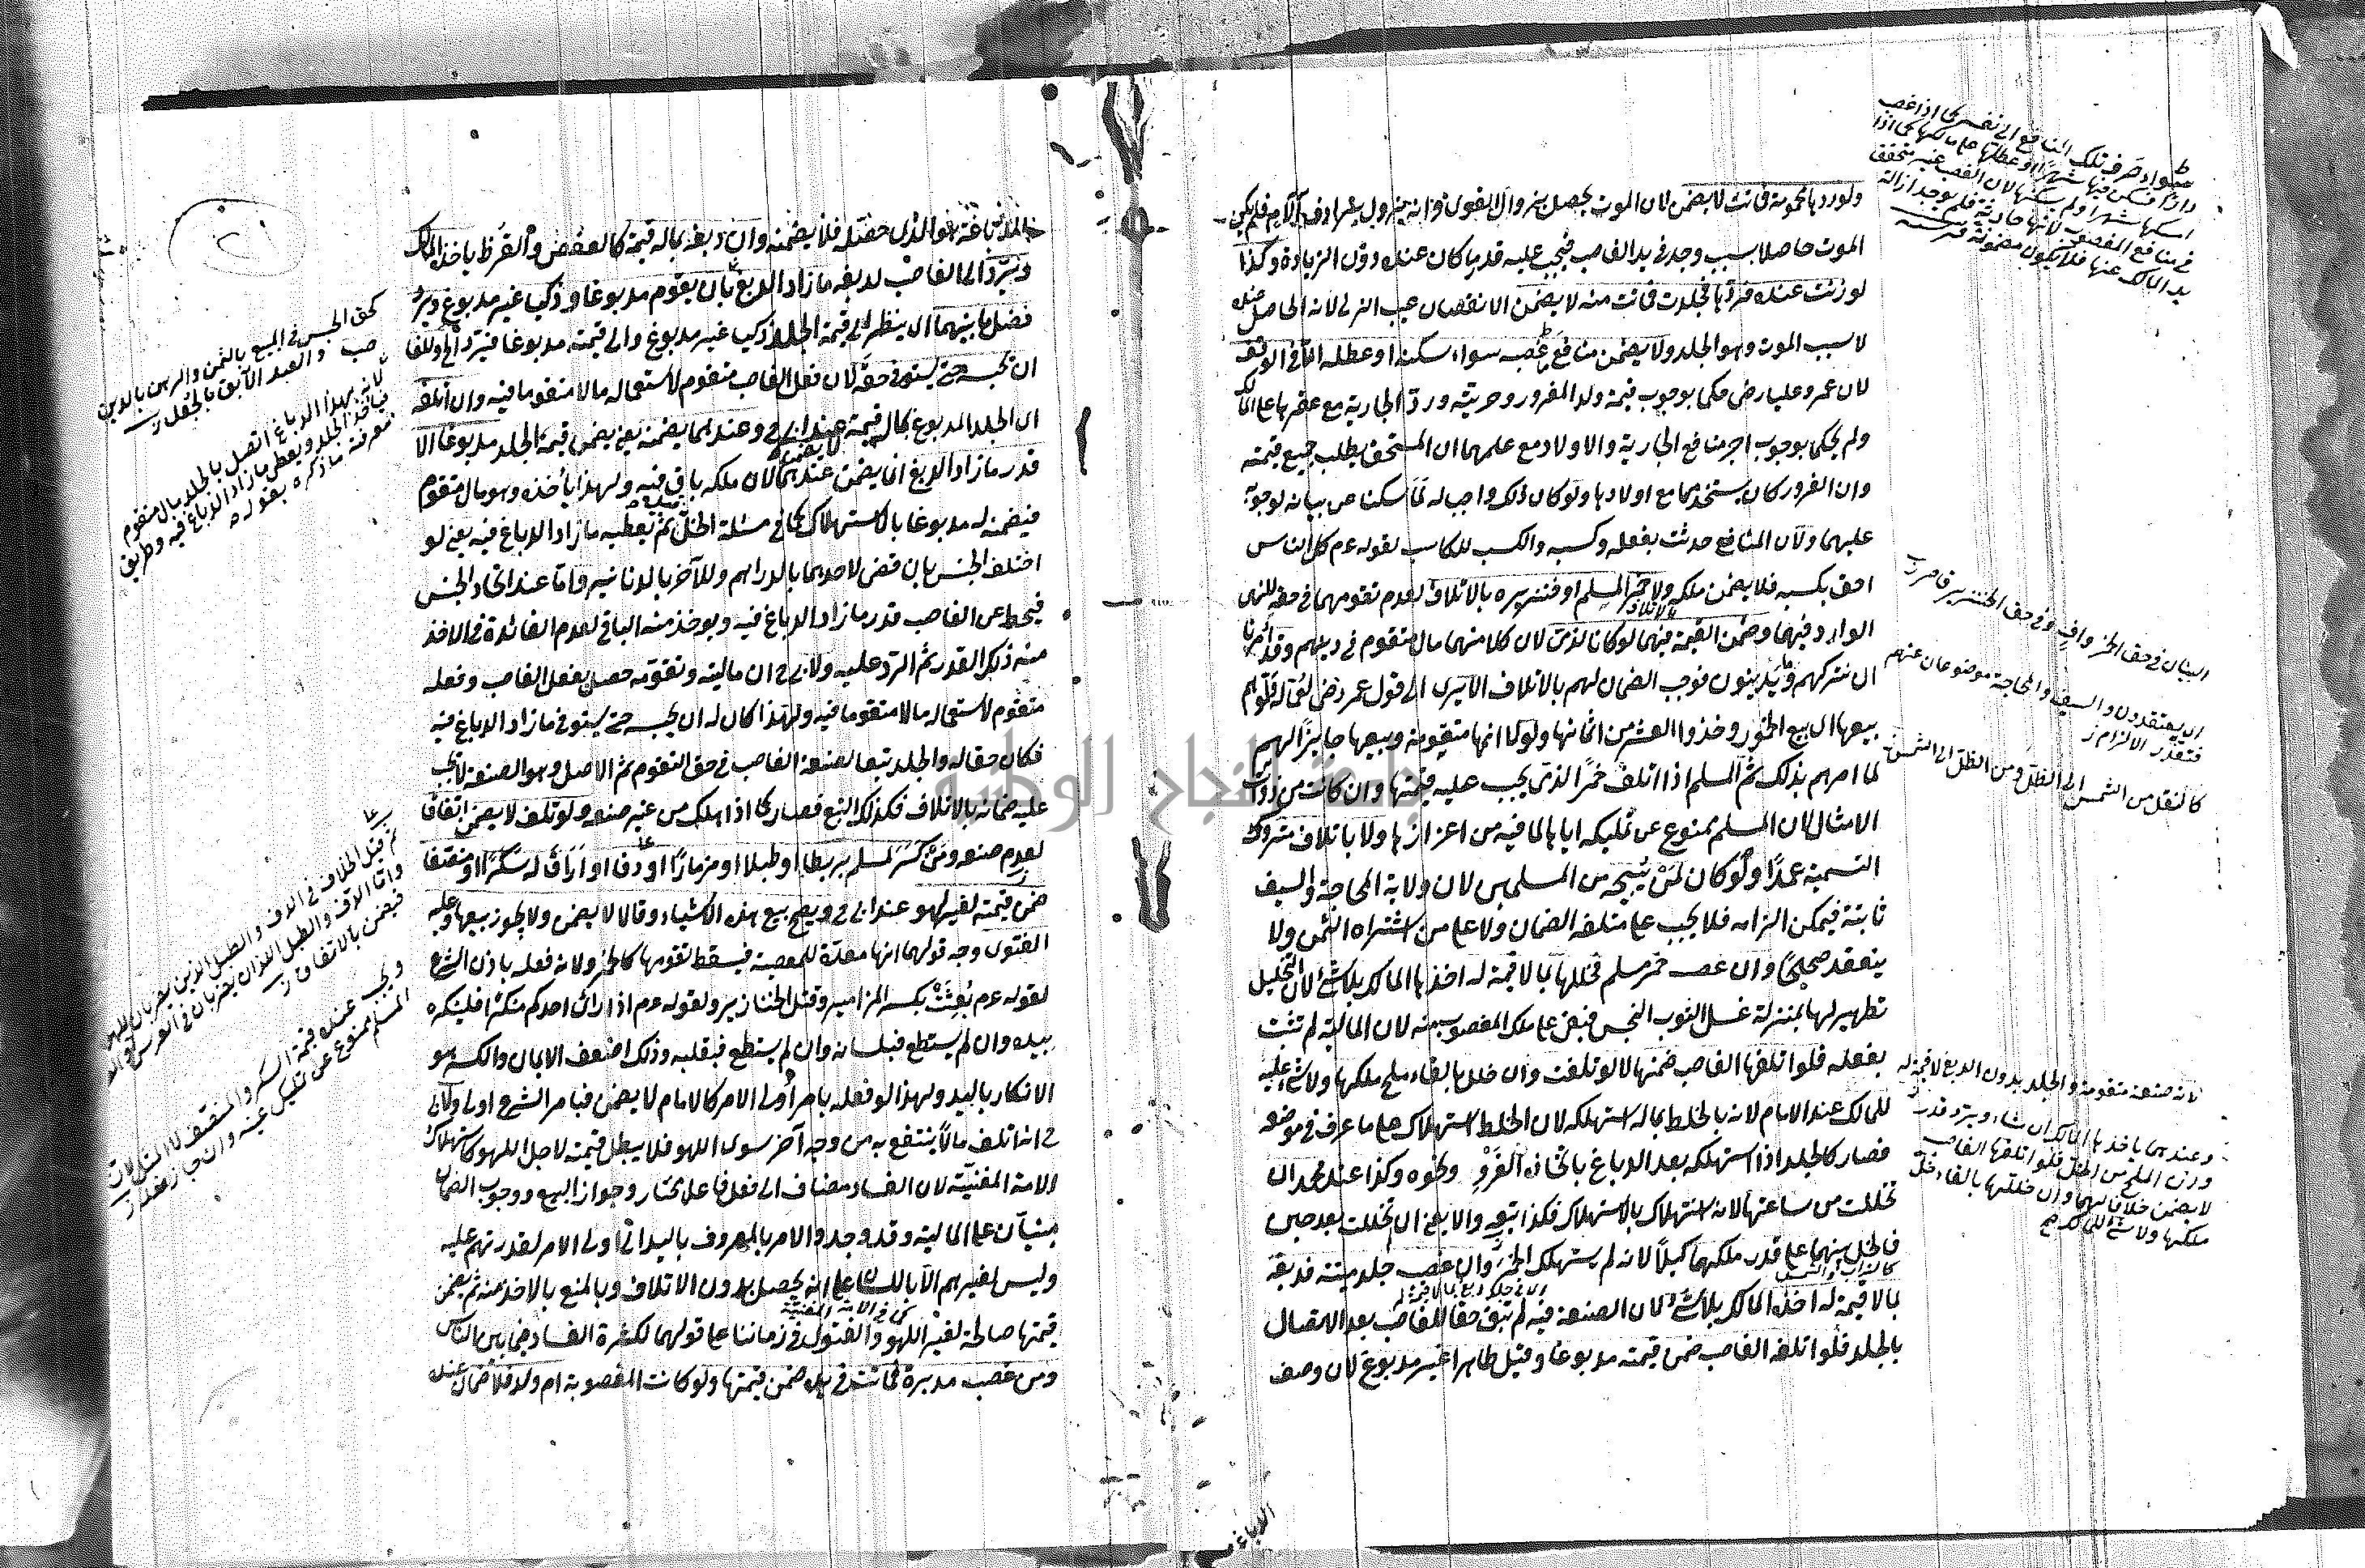 ولو ردها محمومة فماتت لا يضمن لان الموت يحصل بزوال القوى وانه يزول بترادف الآلام فلم يكن
الموت حاصلا بسبب وجد في يد الغاصب فيجب عليه قدر ما كان عنده دون الزيادة وكذا
لو زنت عنده فردها فجلدت فماتت منه لا يضمن الا نقصان عيب الزنى لانه الحاصل عنده
لا سبب الموت وهو الجلد ولا يضمن منافع غصبه سواء سكنه او عطله الا في الوقف
لان عمر وعليا رضي حكما بوجوب قيمة ولد المغرور وحريته ورد الجارية مع عقرها على المالك
ولم يحكما بوجوب اجر منافع الجارية والاولاد مع علمهما ان المستحق يطلب جميع قيمته
وان المغرور كان يستخدمها مع اولادها ولو كان ذلك واجبا له لما سكتا عن بيانه لوجوبه
عليهما ولان المنافع حدثت بفعله وكسبه والكسب للكاسب لقوله عم كل الناس
احق بكسبه فلا يضمن ملكه ولا خمر المسلم او خنزيره بالاتلاف لعدم تقومهما في حقه للنهي
الوارد فيهما وضمن القيمة فيهما لو كانا لذمي لان كلا منهما مال متقوم في دينهم وقد أمرنا
ان نتركهم وما يدينون فوجب الضمان لهم بالاتلاف الا يرى الى قول عمر رضي
بيعها ال بيع الخمور وخذوا العشر من اثمانها ولولا انها متقومة وبيعها جايزا لهم
لما امرهم بذلك ثم المسلم اذا اتلف خمر الذمي يجب عليه قيمتها وان كانت من ذوات
الامثال لان المسلم ممنوع عن تمليكه اياها لما فيه من اعزازها ولا باتلاف متروك
التسمية عمدا ولو كان لمن يبيحه من المسلمين لان ولاية المحاجة والسيف
ثابتة فيمكن الزامه فلا يجب على متلفه الضمان ولا على من اشتراه الثمن ولا
ينعقد صحيحا وان غصب خمر مسلم فخللها بما لا قيمة له اخذها المالك بلا شئ لان التخليل
تطهير لها بمنزلة غسل الثوب النجس فبقي على ملك المغصوب منه لان المالية لم تثبت
بفعله فلو اتلفها الغاصب ضمنها لا لو تلفت وان خللها بالقاء ملح ملكها ولا شئ عليه
للمالك عند الامام لانه بالخلط بماله استهلكه لان الخلط استهلاك على ما عرف في موضعه
فصار كالجلد اذا استهلكه بعد الدباغ باتخاذه الفرو ونحوه وكذا عند محمد ان
تخللت من ساعتها لانه استهلاك بالاستهلاك فكذا تبعه والا يعني ان تخللت بعد حين
فالخل بينهما على قدر ملكهما كيلا لانه لم يستهلك الخمر وان غصب جلد ميتة فدبغه
كالتراب والشمس
بما لا قيمة له اخذه المالك بلا شئ لان الصنعة فيه لم تبق حقا للغاصب بعد الاتصال
بالجلد فلو اتلفه الغاصب ضمن قيمته مدبوغا وقيل طاهرا غير مدبوغ لان وصف
الدباغة
سواء صرف تلك المنافع الى نفسه كما اذا غصب
يد المالك عنها فلا يكون مضمونة
البيان في حق الخمر واف وفي حق الخنزير قاصر
ان يعتقدون والسيف والمحاجة موضوعان عنهم
فتعذر الالزام
كالنقل من الشمس الى الظل ومن الظل الى الشمس
لانه صنعة متقومة والجلد بدون الدبغ لا قيمة له
وعندهما ياخذها المالك ان شاء ويرد قدر
وزن الملح من الخل فلو اتلفها الغاصب
لا يضمن خلافا لهما وان خللها بالقاء خل
ملكها ولا شئ للمالك
الدباغة هو الذي حصله فلا يضمنه وان دبغه بما له قيمة كالعفص والقرظ ياخذه المالك
ويرد الى الغاصب لدبغه ما زاد الدبغ بان يقوم مدبوغا وذكيا غير مدبوغ ويرد
فضل ما بينهما ال ينظر الى قيمة الجلد ذكيا غير مدبوغ والى قيمته مدبوغا فيرد
ان يحبسه حتى يستوفي حقه لان فعل الغاصب متقوم لاستعماله مالا متقوما فيه وان اتلفه
ال الجلد المدبوغ بما له قيمة لا يضمنه عند ابي ح وعندهما يضمنه يعني يضمن قيمة الجلد مدبوغا الا
قدر ما زاد الدبغ انما يضمن عندهما لان ملكه باق فيه ولهذا يأخذه وهو مال متقوم
فيضمنه له مدبوغا بالاستهلاك كما في مسئلة الخل ثم يعطيه ما زاد الدباغ فيه يعني لو
اختلف الجنس بان قضى لاحدهما بالدراهم وللآخر بالدنانير واما عند اتحاد الجنس
فيحط عن الغاصب قدر ما زاد الدباغ فيه ويوخذ منه الباقي لعدم الفائدة في الاخذ
منه ذلك القدر ثم الرد عليه ولابي ح ان ماليته وتقومه حصل بفعل الغاصب وفعله
متقوم لاستعماله مالا متقوما فيه ولهذا كان له ان يحبسه حتى يستوفي ما زاد الدباغ فيه
فكان حقا له والجلد تبعا لصنعة الغاصب في حق التقوم ثم الاصل وهو الصنعة لا يجب
عليه ضمانه بالاتلاف فكذلك التبع فصار كما اذا هلك من غير صنعه ولو تلف لا يضمن اتفاقا
لعدم صنعه ومن كسر لمسلم بربطا او طبلا او مزمارا او دفا او اراق له سكرا او منصفا
ضمن قيمته لغير لهو عند ابي ح ويصح بيع هذه الاشياء وقالا لا يضمن ولا يجوز بيعها وعليه
الفتوى وجه قولهما انها معدة للمعصية فيسقط تقومها كالخمر ولانه فعله باذن الشرع
لقوله عم بعثت بكسر المزامير وقتل الخنازير ولقوله عم اذا رأى احدكم منكرا فلينكره
بيده وان لم يستطع فبلسانه وان لم يستطع فبقلبه وذلك اضعف الايمان والكسر هو
الانكار باليد ولهذا لو فعله بامر أولى الامر كالامام لا يضمن فبامر الشرع اولى ولابي
ح انه اتلف مالا ينتفع به من وجه آخر سوى اللهو فلا يبطل قيمته لاجل اللهو كاستهلاك
الامة المغنية لان الفساد مضاف الى فعل فاعل مختار وجواز البيع ووجوب الضمان
مبنيان على المالية وقد وجد والامر بالمعروف باليد الى اولى الامر لقدرتهم عليه
وليس لغيرهم الا باللسان على انه يحصل بدون الاتلاف وبالمنع بالاخذ منه ثم يضمن
كما في الامة المغنية
قيمتها صالحة لغير اللهو والفتوى في زماننا على قولهما لكثرة الفساد فيما بين الناس
ومن غصب مدبرة فماتت في يده ضمن قيمتها ولو كانت المغصوبة ام ولد فلا ضمان عنده
كحق الحبس في المبيع بالثمن والرهن بالدين
والعبد الآبق بالجعل
لانه بهذا الدباغ اتصل بالجلد مال متقوم
فياخذ الجلد ويعطي ما زاد الدباغ فيه وطريق
معرفته ما ذكره بقوله
ثم قيل الخلاف في الدف والطبل الذين يضربان للهو
واما الدف والطبل اللذان يضربان في العرس
فيضمن بالاتفاق
ويجب عنده قيمة السكر والمنصف لا المثل لان
المسلم ممنوع عن تمليك عينه وان جاز فعله